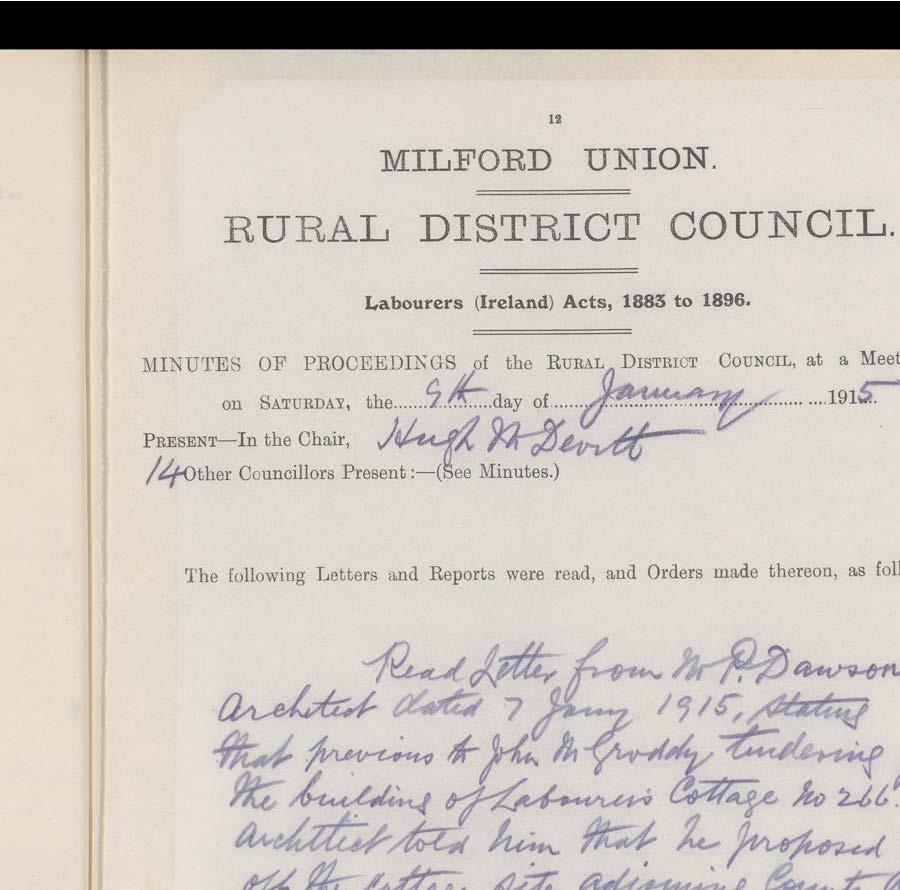 12
MILFORD UNION.
RURAL DISTRICT COUNCIL.
Labourers (Ireland) Acts, 1883 to 1896.
MINUTES OF PROCEEDINGS of the RURAL DISTRICT COUNCIL, at a Meet
on SATURDAY, the......9th......day of......January...... ....1915...
PRESENT—In the Chair, Hugh McDevitt
14 Other Councillors Present:—(See Minutes.)
The following Letters and Reports were read, and Orders made thereon, as foll
Read Letter from Mr P. Dawson
Architect dated 7 Jany 1915, stating
that previous to John McGroddy tendering
the building of Labourers Cottage No 266
Architect told him that he proposed
off the cottage site adjoining